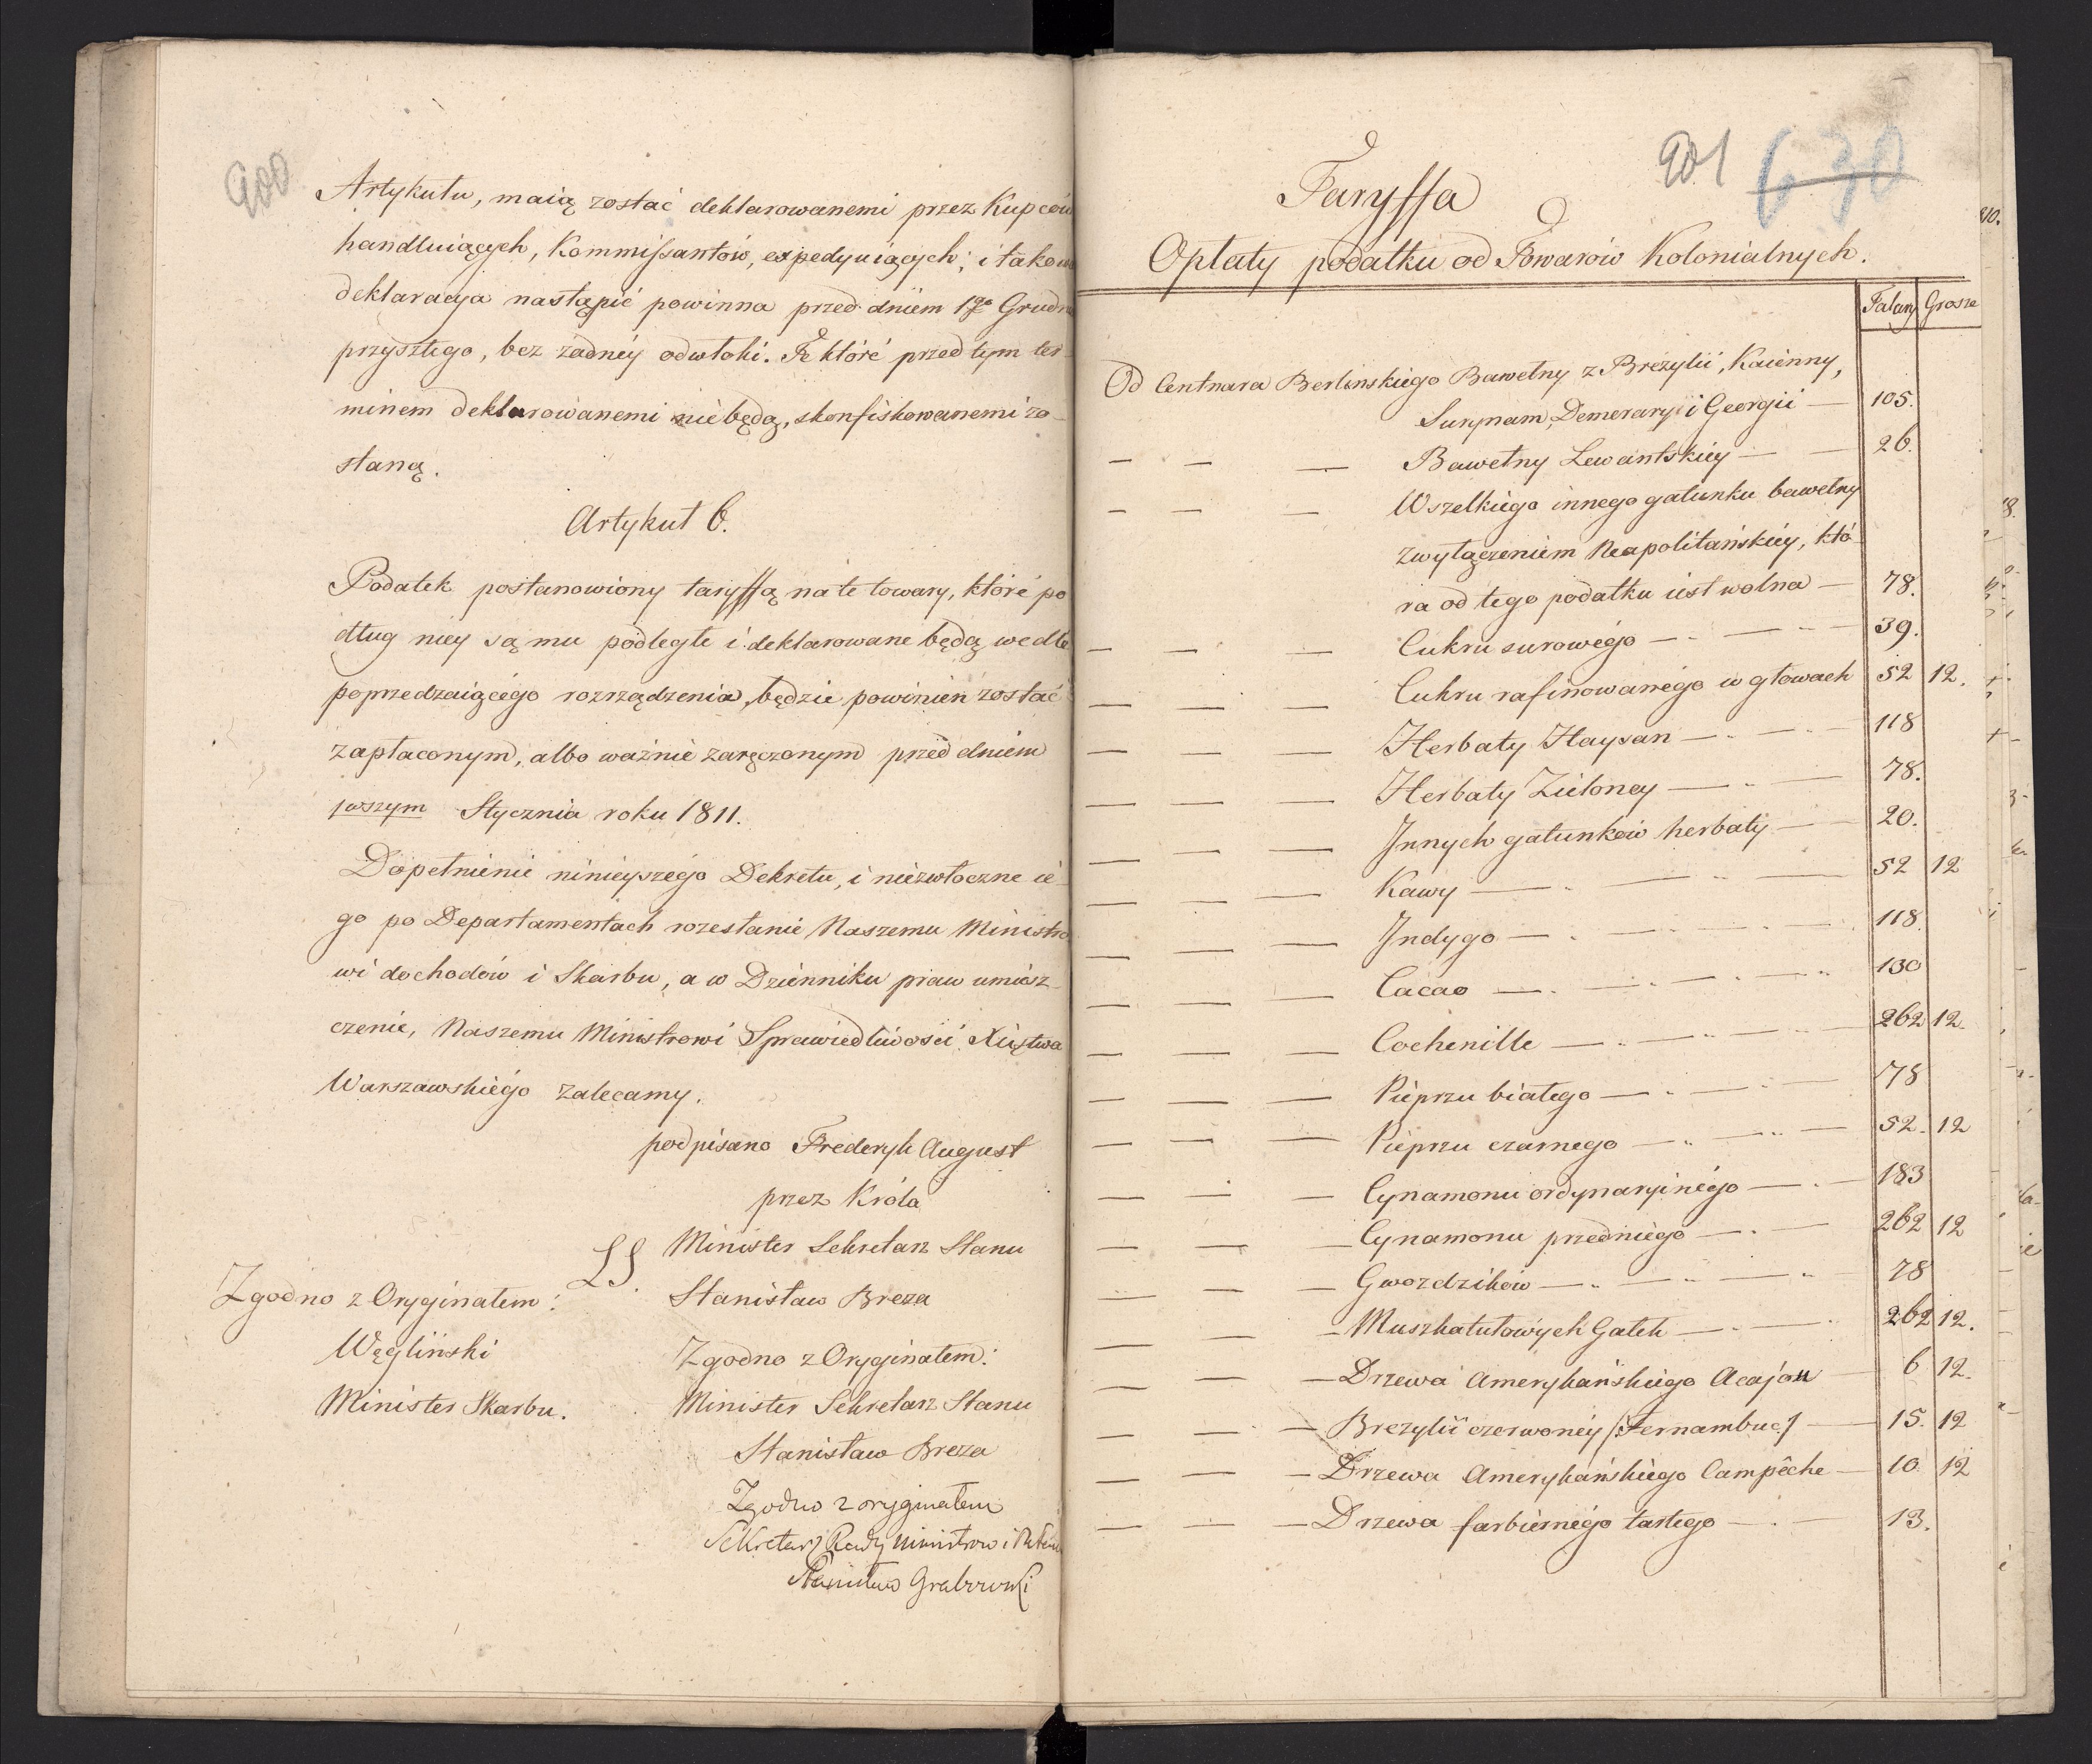 900
Artykułu, maią zostać deklarowanemi przez Kupców
handluiących, Kommissantów, expedyuiących; i takow
deklaracya nastąpić powinna przed dniem 1go Grudn
przyszłego, bez żadnéy odwłoki. Te które przed tym ter-
minem deklarowanemi nie będą, skonfiskowanemi zo-
staną.
Artykuł 6.
Podatek postanowiony taryffą na te towary, które po
dług niey są mu podległe i deklarowane będą wedle
poprzedzaiącego rozrządzenia, będzie powinien zostać
zapłaconym, albo ważnie zaręczonym przed dniem
1wszym Stycznia roku 1811.
Dopełnienie ninieyszégo Dekretu, i niezwłoczne ié-
go po Departamentach rozesłanie Naszemu Ministro
wi dochodów i Skarbu, a w Dzienniku praw umiesz-
czenie, Naszemu Ministrowi Sprawiedliwości Xięstwa
Warszawskiégo zalecamy.
podpisano Frederyk August
przez Króla
LS. Minister Sekretarz Stanu
Stanisław Breza
Zgodno z Oryginałem:
Węgliński
Minister Skarbu.
Zgodno z Oryginałem:
Minister Sekretarz Stanu
Stanisław Breza
Zgodno z oryginałem
Sekretarz Rady Ministrow i
Stanisław Grabowski
901 630
Taryffa
Opłaty podatku od Towarów Kolonialnych.
Talary Grosze
Od Centnara Berlinskiego Bawełny z Brezylii, Kaienny,
Surynam, Demerary i Georgii — 105.
— — — Bawełny Lewantskiey — — 26.
— — — Wszelkiégo innego gatunku bawełny
z wyłączeniem Neapolitańskiéy, któ-
ra od tego podatku iest wolna — 78.
— — — Cukru surowégo — — — 39.
— — — Cukru rafinowanégo w głowach 52 12.
— — — Herbaty Haysan — — 118
— — — Herbaty Zieloney — — 78.
— — — Jnnych gatunków herbaty — 20.
— — — Kawy — — — 52 12
— — — Jndygo — — — 118.
— — — Cacao — — — 130
— — — Cochenille — — — 262 12.
— — — Piéprzu białego — — — 78
— — — Piéprzu czarnego — — — 52. 12
— — — Cynamonu ordynaryinégo — — 183
— — — Cynamonu przedniégo — — 262 12
— — — Gwozdzików — — — 78
— — — Muszkatułowych Gałek — — 262 12.
— — — Drzewa Amerykańskiego Acajou — 6 12.
— — — Brezylii czerwonéy /:Fernambuc:/ — 15. 12
— — — Drzewa Amerykańskiego Campêche — 10. 12
— — — Drzewa farbiernégo tartego — — 13.